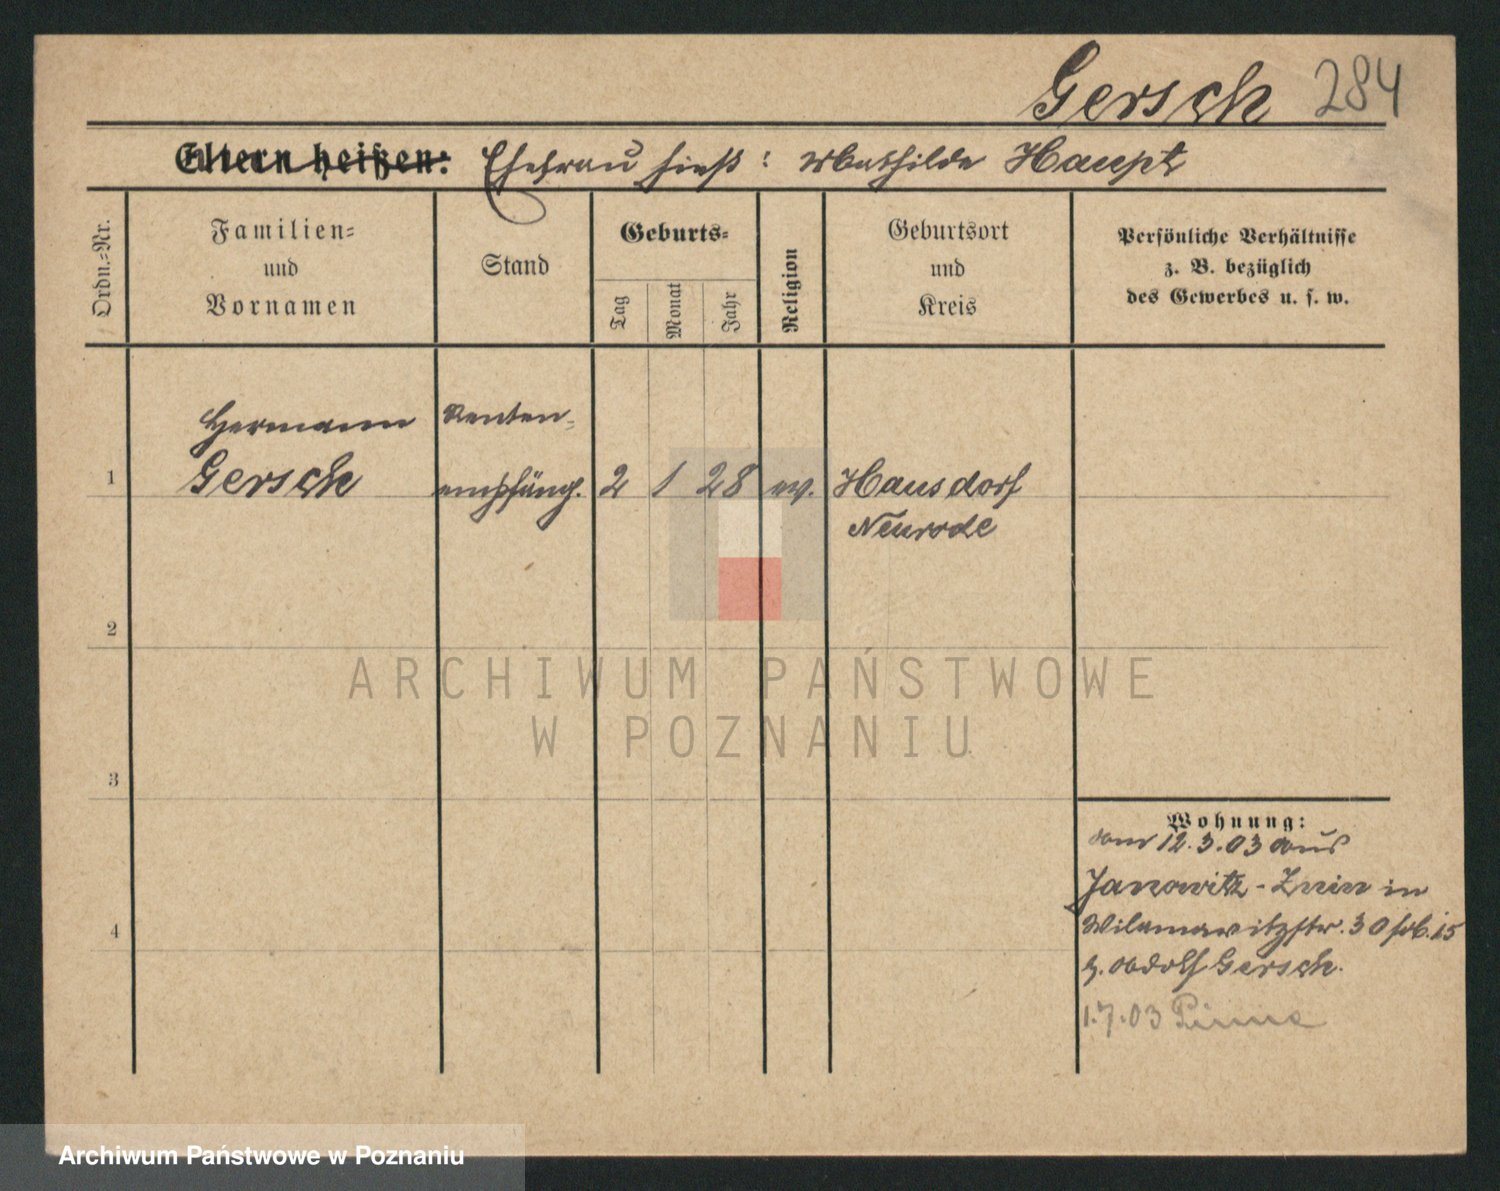 Gersch 284
Eltern heißen: Ehefrau hieß: Mathilde Haupt
Ordn.-Nr.
Familien-
und
Vornamen
Stand
Geburts-
Tag
Monat
Jahr
Religion
Geburtsort
und
Kreis
Persönliche Verhältnisse
z. B. bezüglich
des Gewerbes u. s. w.
Hermann Renten-
1 Gersch empfäng. 2 1 28 ev. Hausdorf
Neurode
2
3
4
Wohnung:
vom 12.3.03 aus
Janowitz - Znin in
Wilamowitzstr. 30 15
b. Adolf Gersch.
1.7.03 Pinne
ARCHIWUM PAŃSTWOWE
W POZNANIU
Archiwum Państwowe w Poznaniu